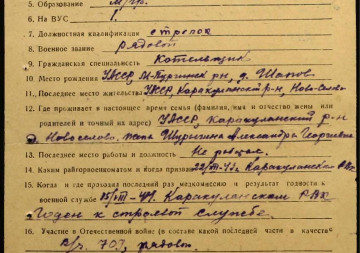 5. Образование
6. На ВУС 1.
7. Должностная квалификация стрелок
8. Военное звание рядовой
9. Гражданская специальность
10. Место рождения УАССР, д. Шапов
11. Последнее место жительства УАССР Каракулинский р-н,
12. Где проживает в настоящее время семья (фамилия, имя и отчество жены или
родителей и точный их адрес) УАССР, Каракулинский р-н
д. Новоселово, жена Александра Георгиевна
13. Последнее место работы и должность Не работал
14. Каким райгорвоенкоматом и когда призван Каракулинским РВК
15. Когда и где проходил последний раз медкомиссию и результат годности к
военной службе Каракулинском РВК
Годен к строевой службе.
16. Участие в Отечественной войне (в составе какой последней части в качестве
В/ч 703, рядовой.